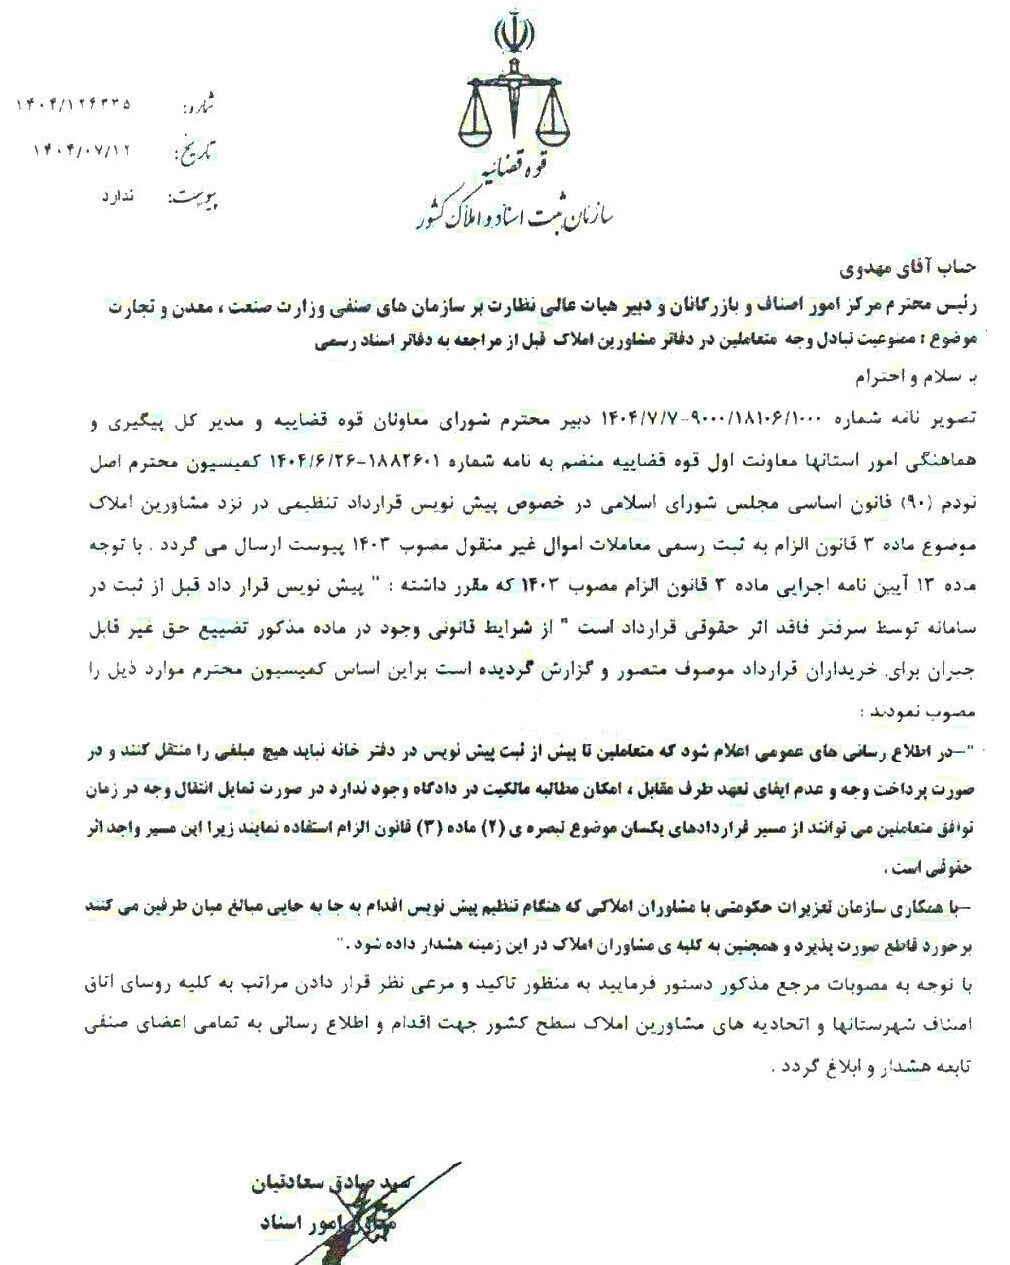 قوه قضائیه
سازمان ثبت اسناد و املاک کشور
شماره: ۱۴۰۴/۱۲۴۳۳۵
تاریخ: ۱۴۰۴/۰۷/۱۲
پیوست: ندارد
جناب آقای مهدوی
رئیس محترم مرکز امور اصناف و بازرگانان و دبیر هیات عالی نظارت بر سازمان های صنفی وزارت صنعت ، معدن و تجارت
موضوع : ممنوعیت تبادل وجه متعاملین در دفاتر مشاورین املاک قبل از مراجعه به دفاتر اسناد رسمی
با سلام و احترام
تصویر نامه شماره ۹۰۰۰/۱۸۱۰۶/۱۰۰۰-۱۴۰۴/۷/۷ دبیر محترم شورای معاونان قوه قضاییه و مدیر کل پیگیری و
هماهنگی امور استانها معاونت اول قوه قضاییه منضم به نامه شماره ۱۸۸۲۶۰۱-۱۴۰۴/۶/۲۶ کمیسیون محترم اصل
نودم (۹۰) قانون اساسی مجلس شورای اسلامی در خصوص پیش نویس قرارداد تنظیمی در نزد مشاورین املاک
موضوع ماده ۳ قانون الزام به ثبت رسمی معاملات اموال غیر منقول مصوب ۱۴۰۳ پیوست ارسال می گردد . با توجه
ماده ۱۳ آیین نامه اجرایی ماده ۳ قانون الزام مصوب ۱۴۰۳ که مقرر داشته : " پیش نویس قرار داد قبل از ثبت در
سامانه توسط سرفتر فاقد اثر حقوقی قرارداد است " از شرایط قانونی وجود در ماده مذکور تضییع حق غیر قابل
جبران برای خریداران قرارداد موصوف متصور و گزارش گردیده است براین اساس کمیسیون محترم موارد ذیل را
مصوب نمودند :
"–در اطلاع رسانی های عمومی اعلام شود که متعاملین تا پیش از ثبت پیش نویس در دفتر خانه نباید هیچ مبلغی را منتقل کنند و در
صورت پرداخت وجه و عدم ایفای تعهد طرف مقابل ، امکان مطالبه مالکیت در دادگاه وجود ندارد در صورت تمایل انتقال وجه در زمان
توافق متعاملین می توانند از مسیر قراردادهای یکسان موضوع تبصره ی (۲) ماده (۳) قانون الزام استفاده نمایند زیرا این مسیر واجد اثر
حقوقی است .
–با همکاری سازمان تعزیرات حکومتی با مشاوران املاکی که هنگام تنظیم پیش نویس اقدام به جا به جایی مبالغ میان طرفین می کنند
برخورد قاطع صورت پذیرد و همچنین به کلیه ی مشاوران املاک در این زمینه هشدار داده شود ."
با توجه به مصوبات مرجع مذکور دستور فرمایید به منظور تاکید و مرعی نظر قرار دادن مراتب به کلیه روسای اتاق
اصناف شهرستانها و اتحادیه های مشاورین املاک سطح کشور جهت اقدام و اطلاع رسانی به تمامی اعضای صنفی
تابعه هشدار و ابلاغ گردد .
سید صادق سعادتیان
معاون امور اسناد